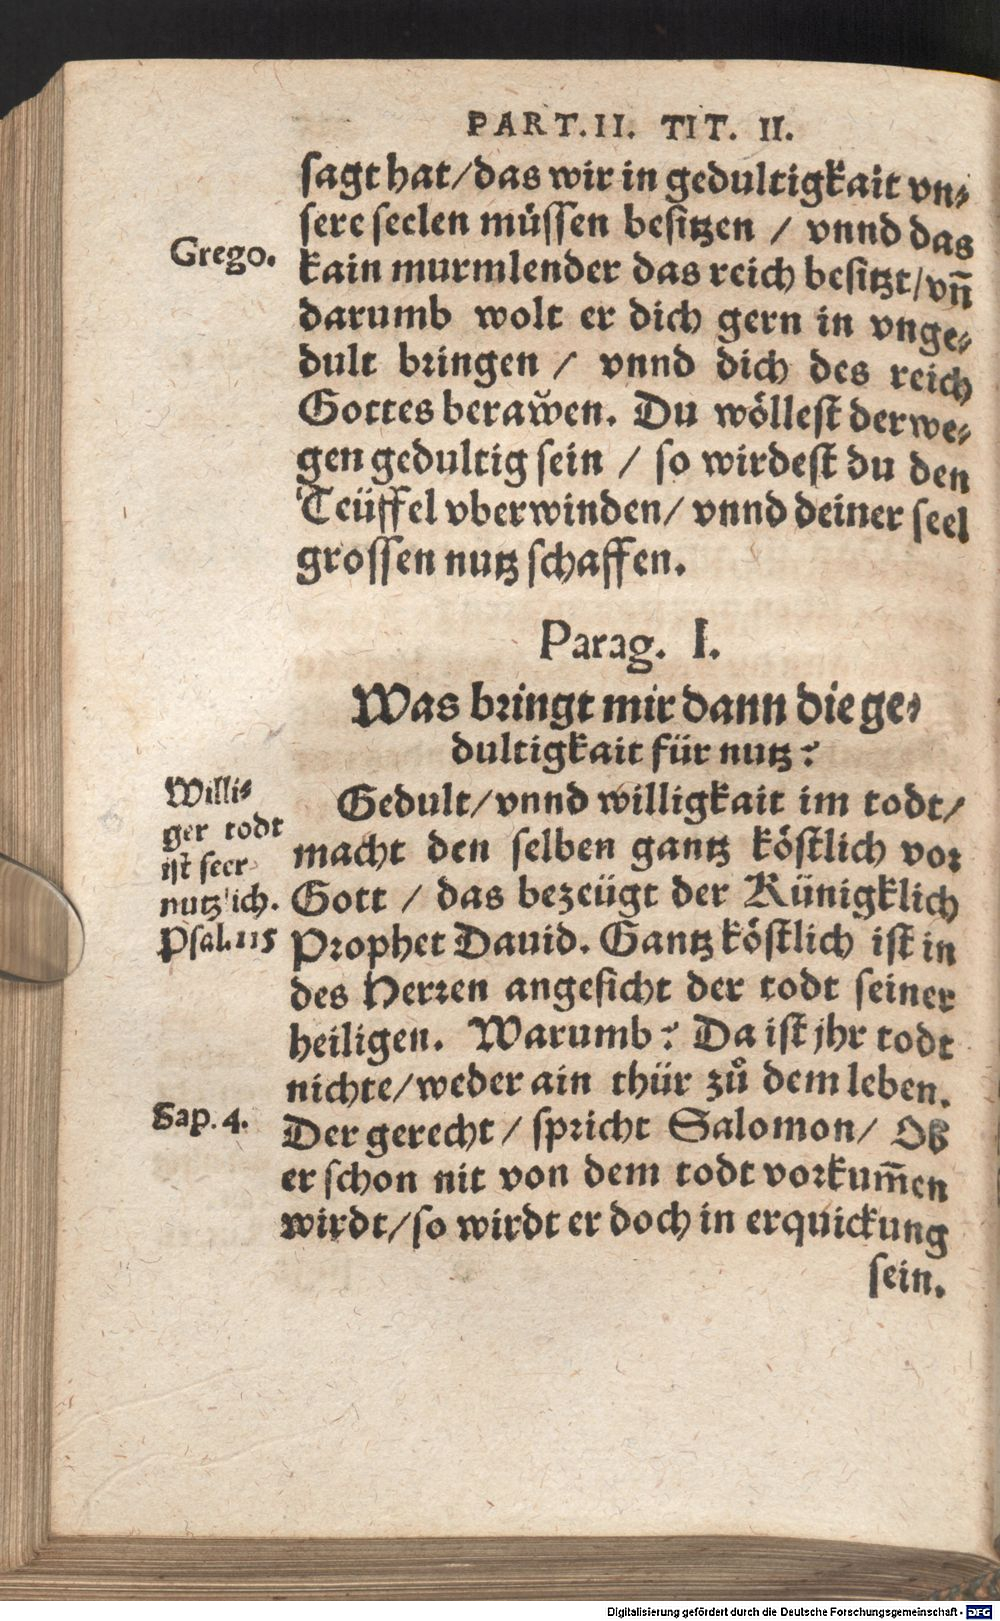 PART.II. TIT. II.
sagt hat/das wir in gedultigkait vn⸗
sere seelen müssen besitzen / vnnd das
Grego.
kain murmlender das reich besitzt/vn̄
darumb wolt er dich gern in vnge⸗
dult bringen / vnnd dich des reich
Gottes beraw̆en. Du wöllest derwe⸗
gen gedultig sein / so wirdest du den
Teüffel vberwinden/ vnnd deiner seel
grossen nutz schaffen.
Parag. I.
Was bringt mir dann die ge⸗
dultigkait für nutz?
Willi⸗
ger todt
ist seer
nutzlich.
Psal.115
Gedult/vnnd willigkait im todt/
macht den selben gantz köstlich vor
Gott / das bezeügt der Künigklich
Prophet Dauid. Gantz köstlich ist in
des Herren angesicht der todt seiner
heiligen. Warumb? Da ist jhr todt
nichte/weder ain thür zů dem leben.
Sap. 4.
Der gerecht/ spricht Salomon/ Ob
er schon nit von dem todt vorkum̄en
wirdt/so wirdt er doch in erquickung
sein.
Digitalisierung gefördert durch die Deutsche Forschungsgemeinschaft - DFG